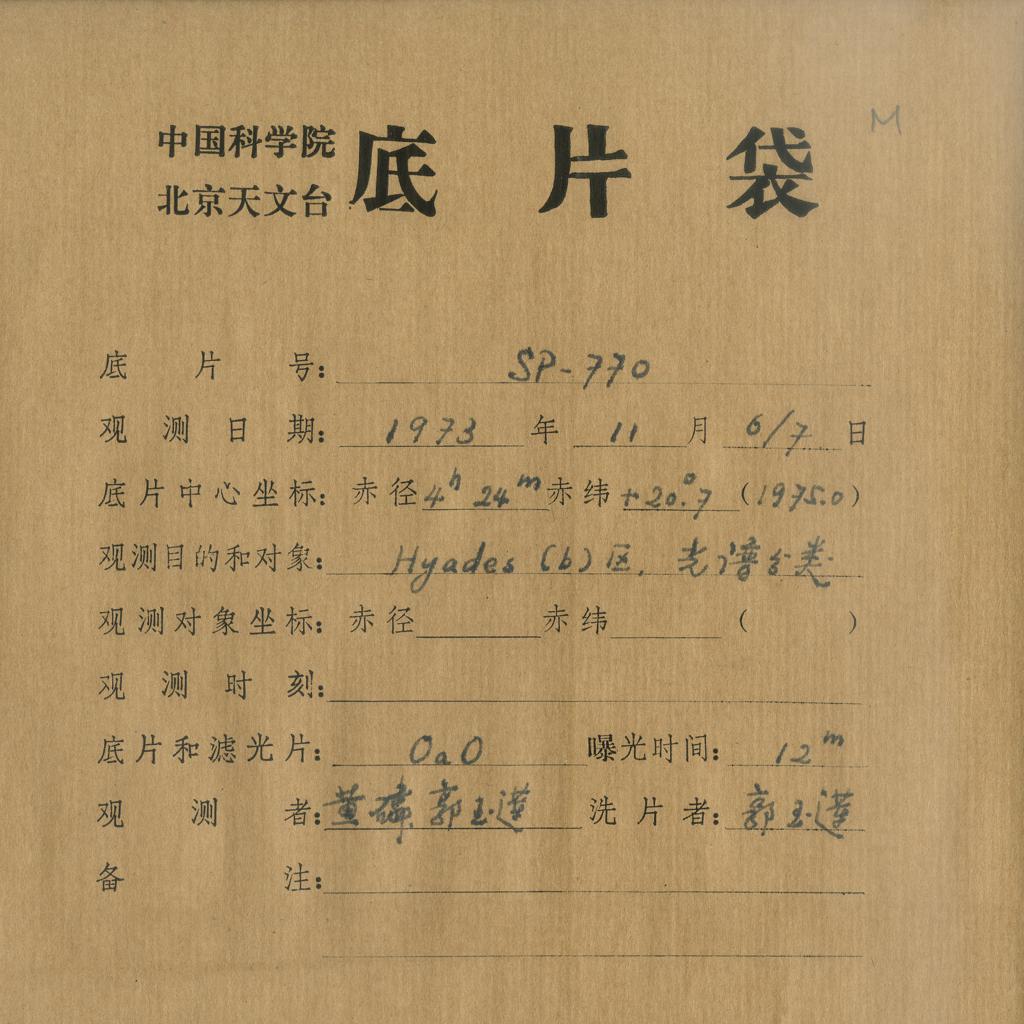 中国科学院 底片袋
北京天文台
M
底片号: SP-770
观测日期: 1973 年 11 月 6/7 日
底片中心坐标: 赤径 4h 24m 赤纬 +20°.7 (1975.0)
观测目的和对象: Hyades (b) 区, 光谱分类
观测对象坐标: 赤径 赤纬 ( )
观测时刻:
底片和滤光片: OaO 曝光时间: 12m
观测者: 黄磷 郭玉莲 洗片者: 郭玉莲
备注: